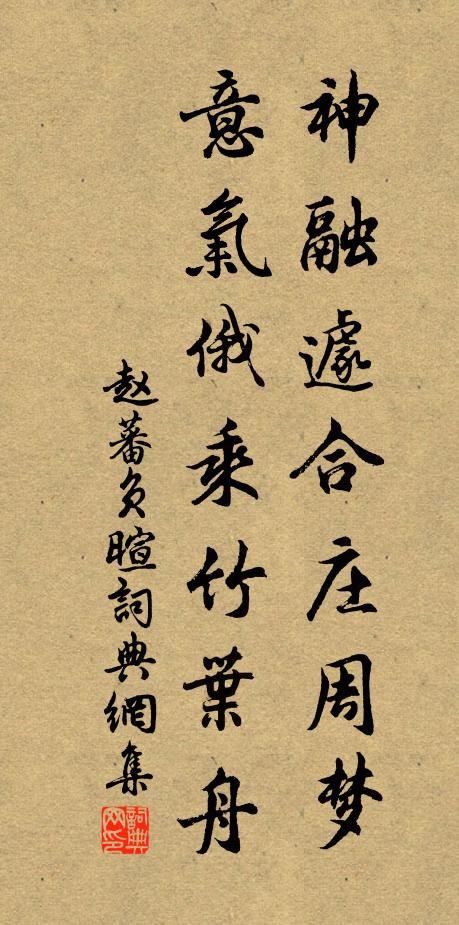 神融遽合庄周梦
意氣俄乘竹葉舟
赵蕃负暄詞典網集
詞典網印